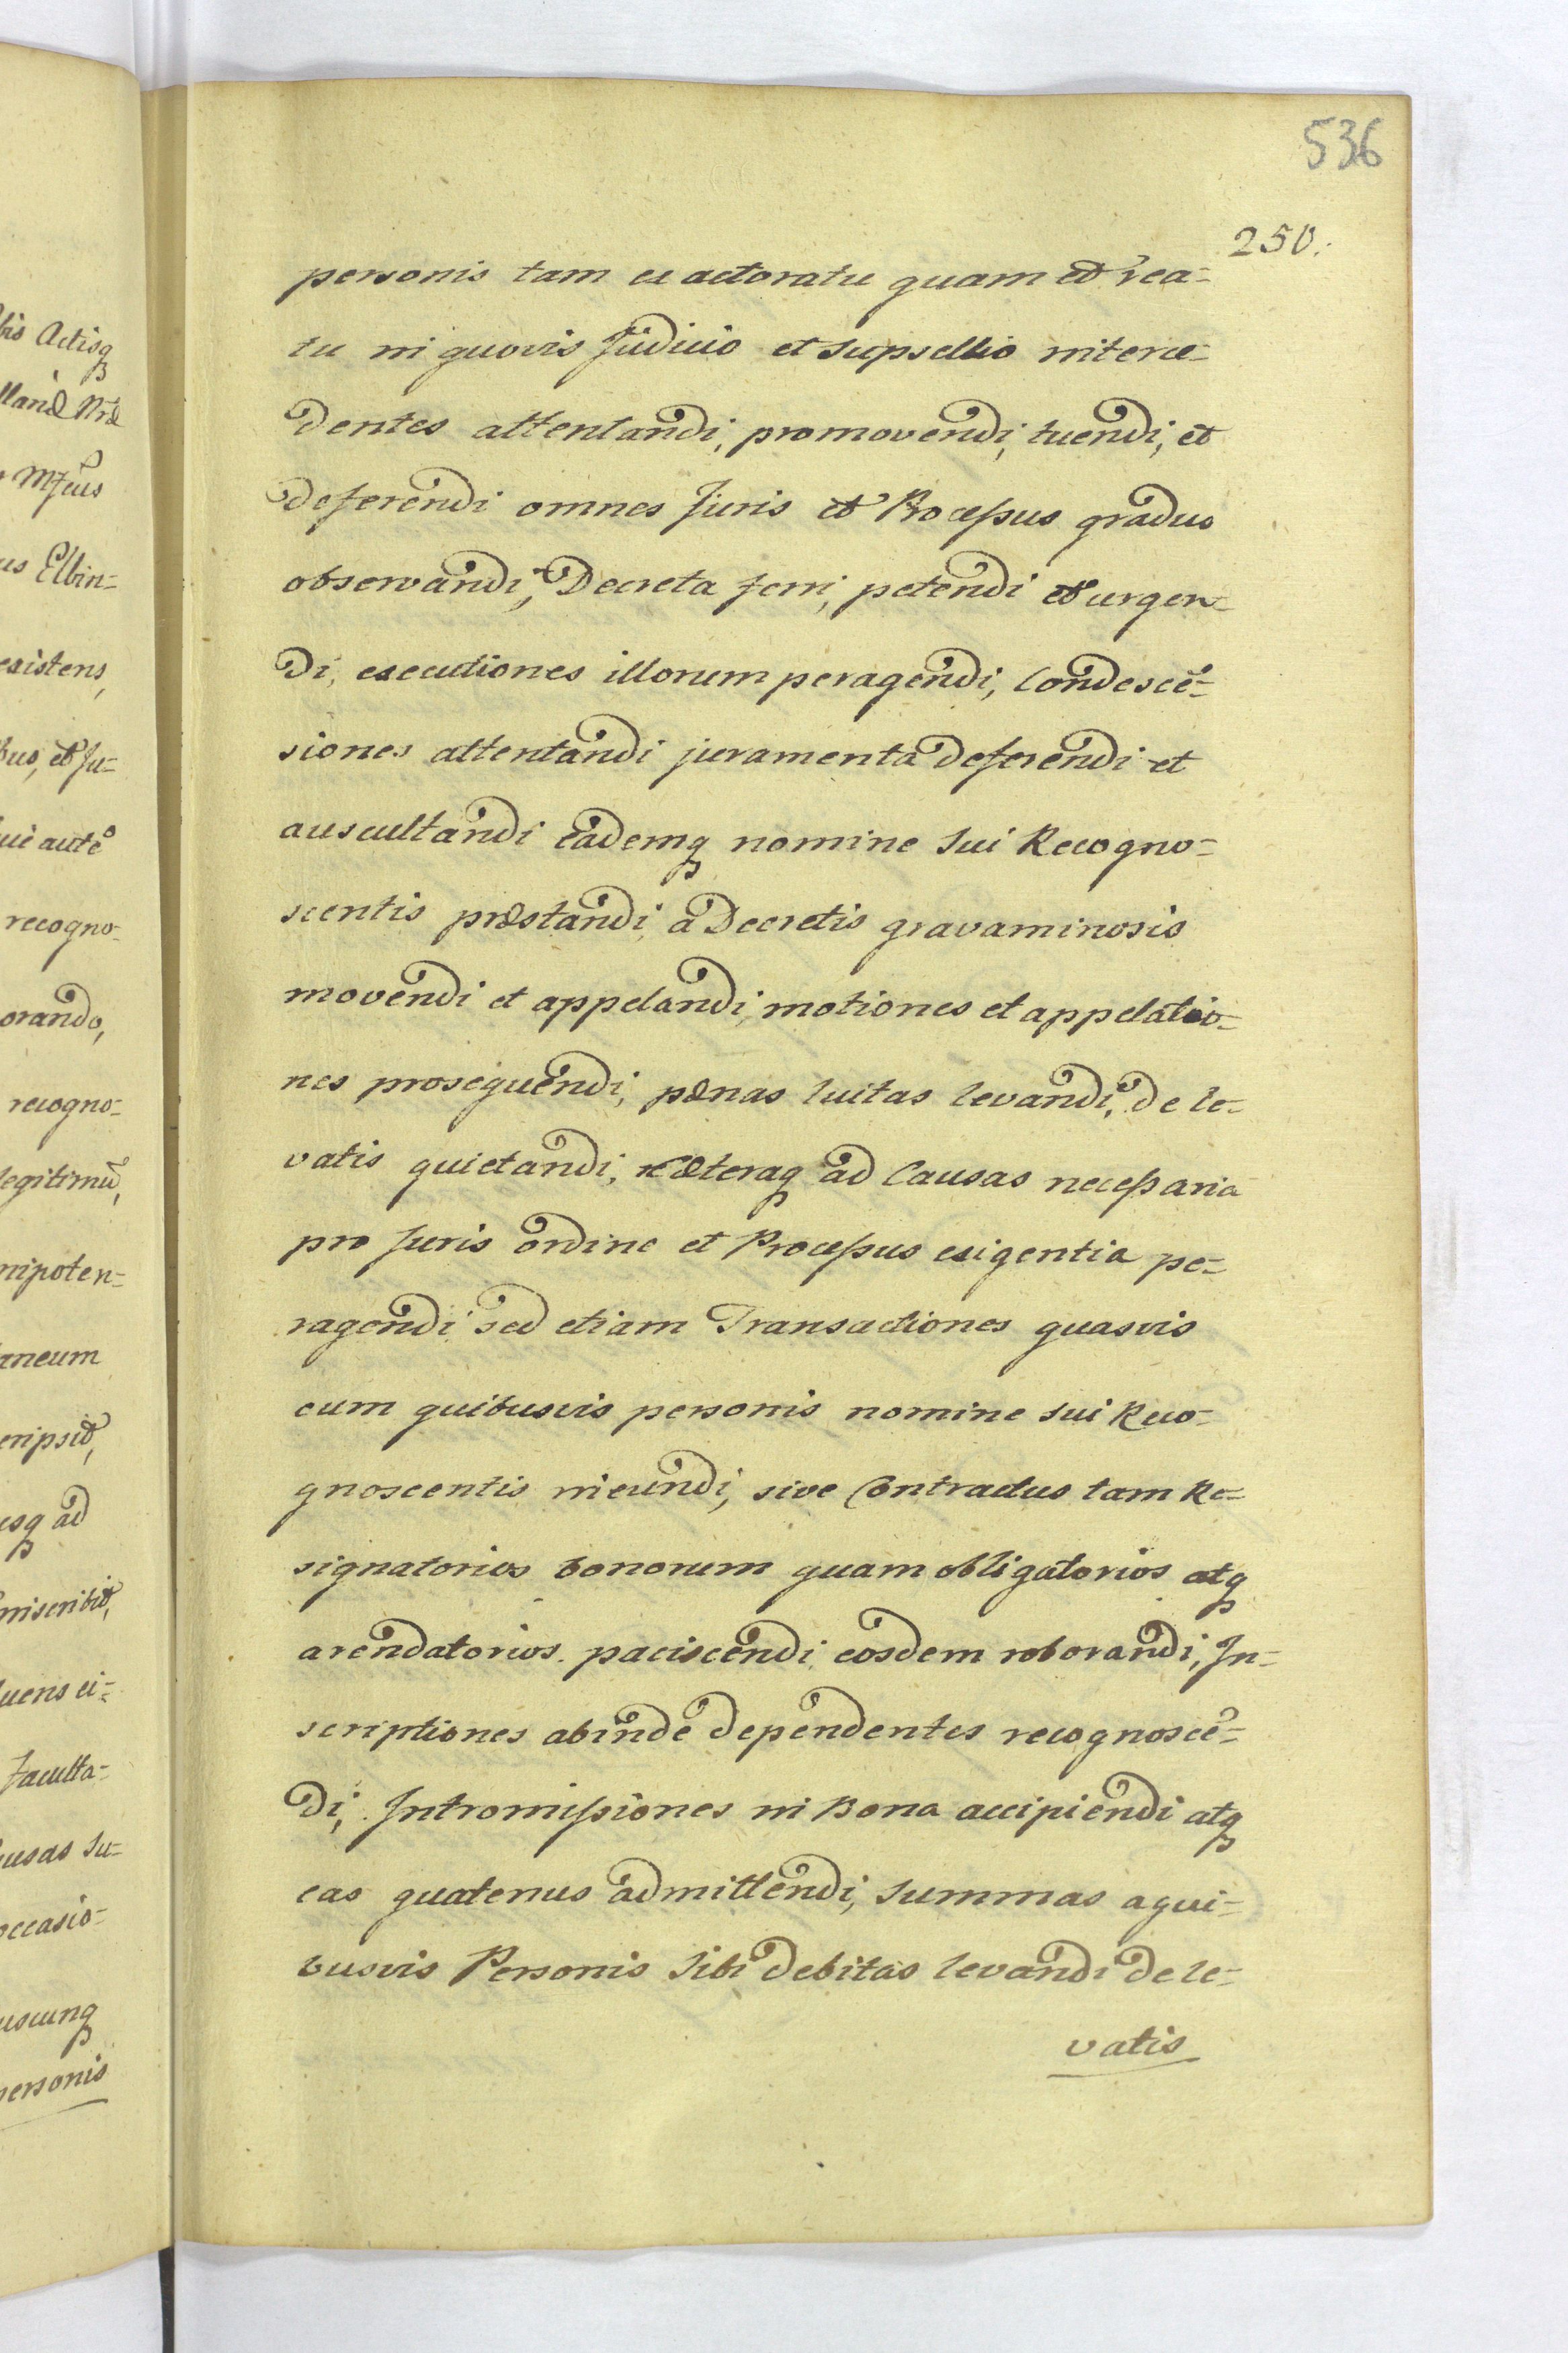 536
250.
personis tam ex actoratu quam et rea-
tu in quovis Judicio et supsellio interce-
dentes attentandi, promovendi, tuendi, et
deferendi omnes Juris et Processus gradus
observandi, Decreta ferri, petendi et urgen-
di, executiones illorum peragendi, Condescē-
siones attentandi juramenta deferendi et
auscultandi eademq nomine sui Recogno-
scentis præstandi, a Decretis gravaminosis
movendi et appelandi, motiones et appelatio-
nes prosequendi, pænas luitas levandi, de le-
vatis quietandi, cæteraq ad Causas necessaria
pro Juris ordine et Processus exigentia pe-
ragendi sed etiam Transactiones quasvis
cum quibusvis personis nomine sui Reco-
gnoscentis ineundi, sive Contractus tam Re-
signatorios bonorum quam obligatorios atq
arendatorios paciscendi, eosdem roborandi, In-
scriptiones abinde dependentes recognoscē-
di, Intromissiones in Bona accipiendi atq
eas quatenus admittendi, summas a qui-
busvis Personis sibi debitas levandi de le-
vatis
bis Actisq
us Elbin-
existens,
bus, et Ju-
recogno-
orando,
recogno-
legitimū,
nipoten-
aneum
cripsit,
usq ad
inscribit,
Faculta-
ausas su-
occasio-
uscunq
personis